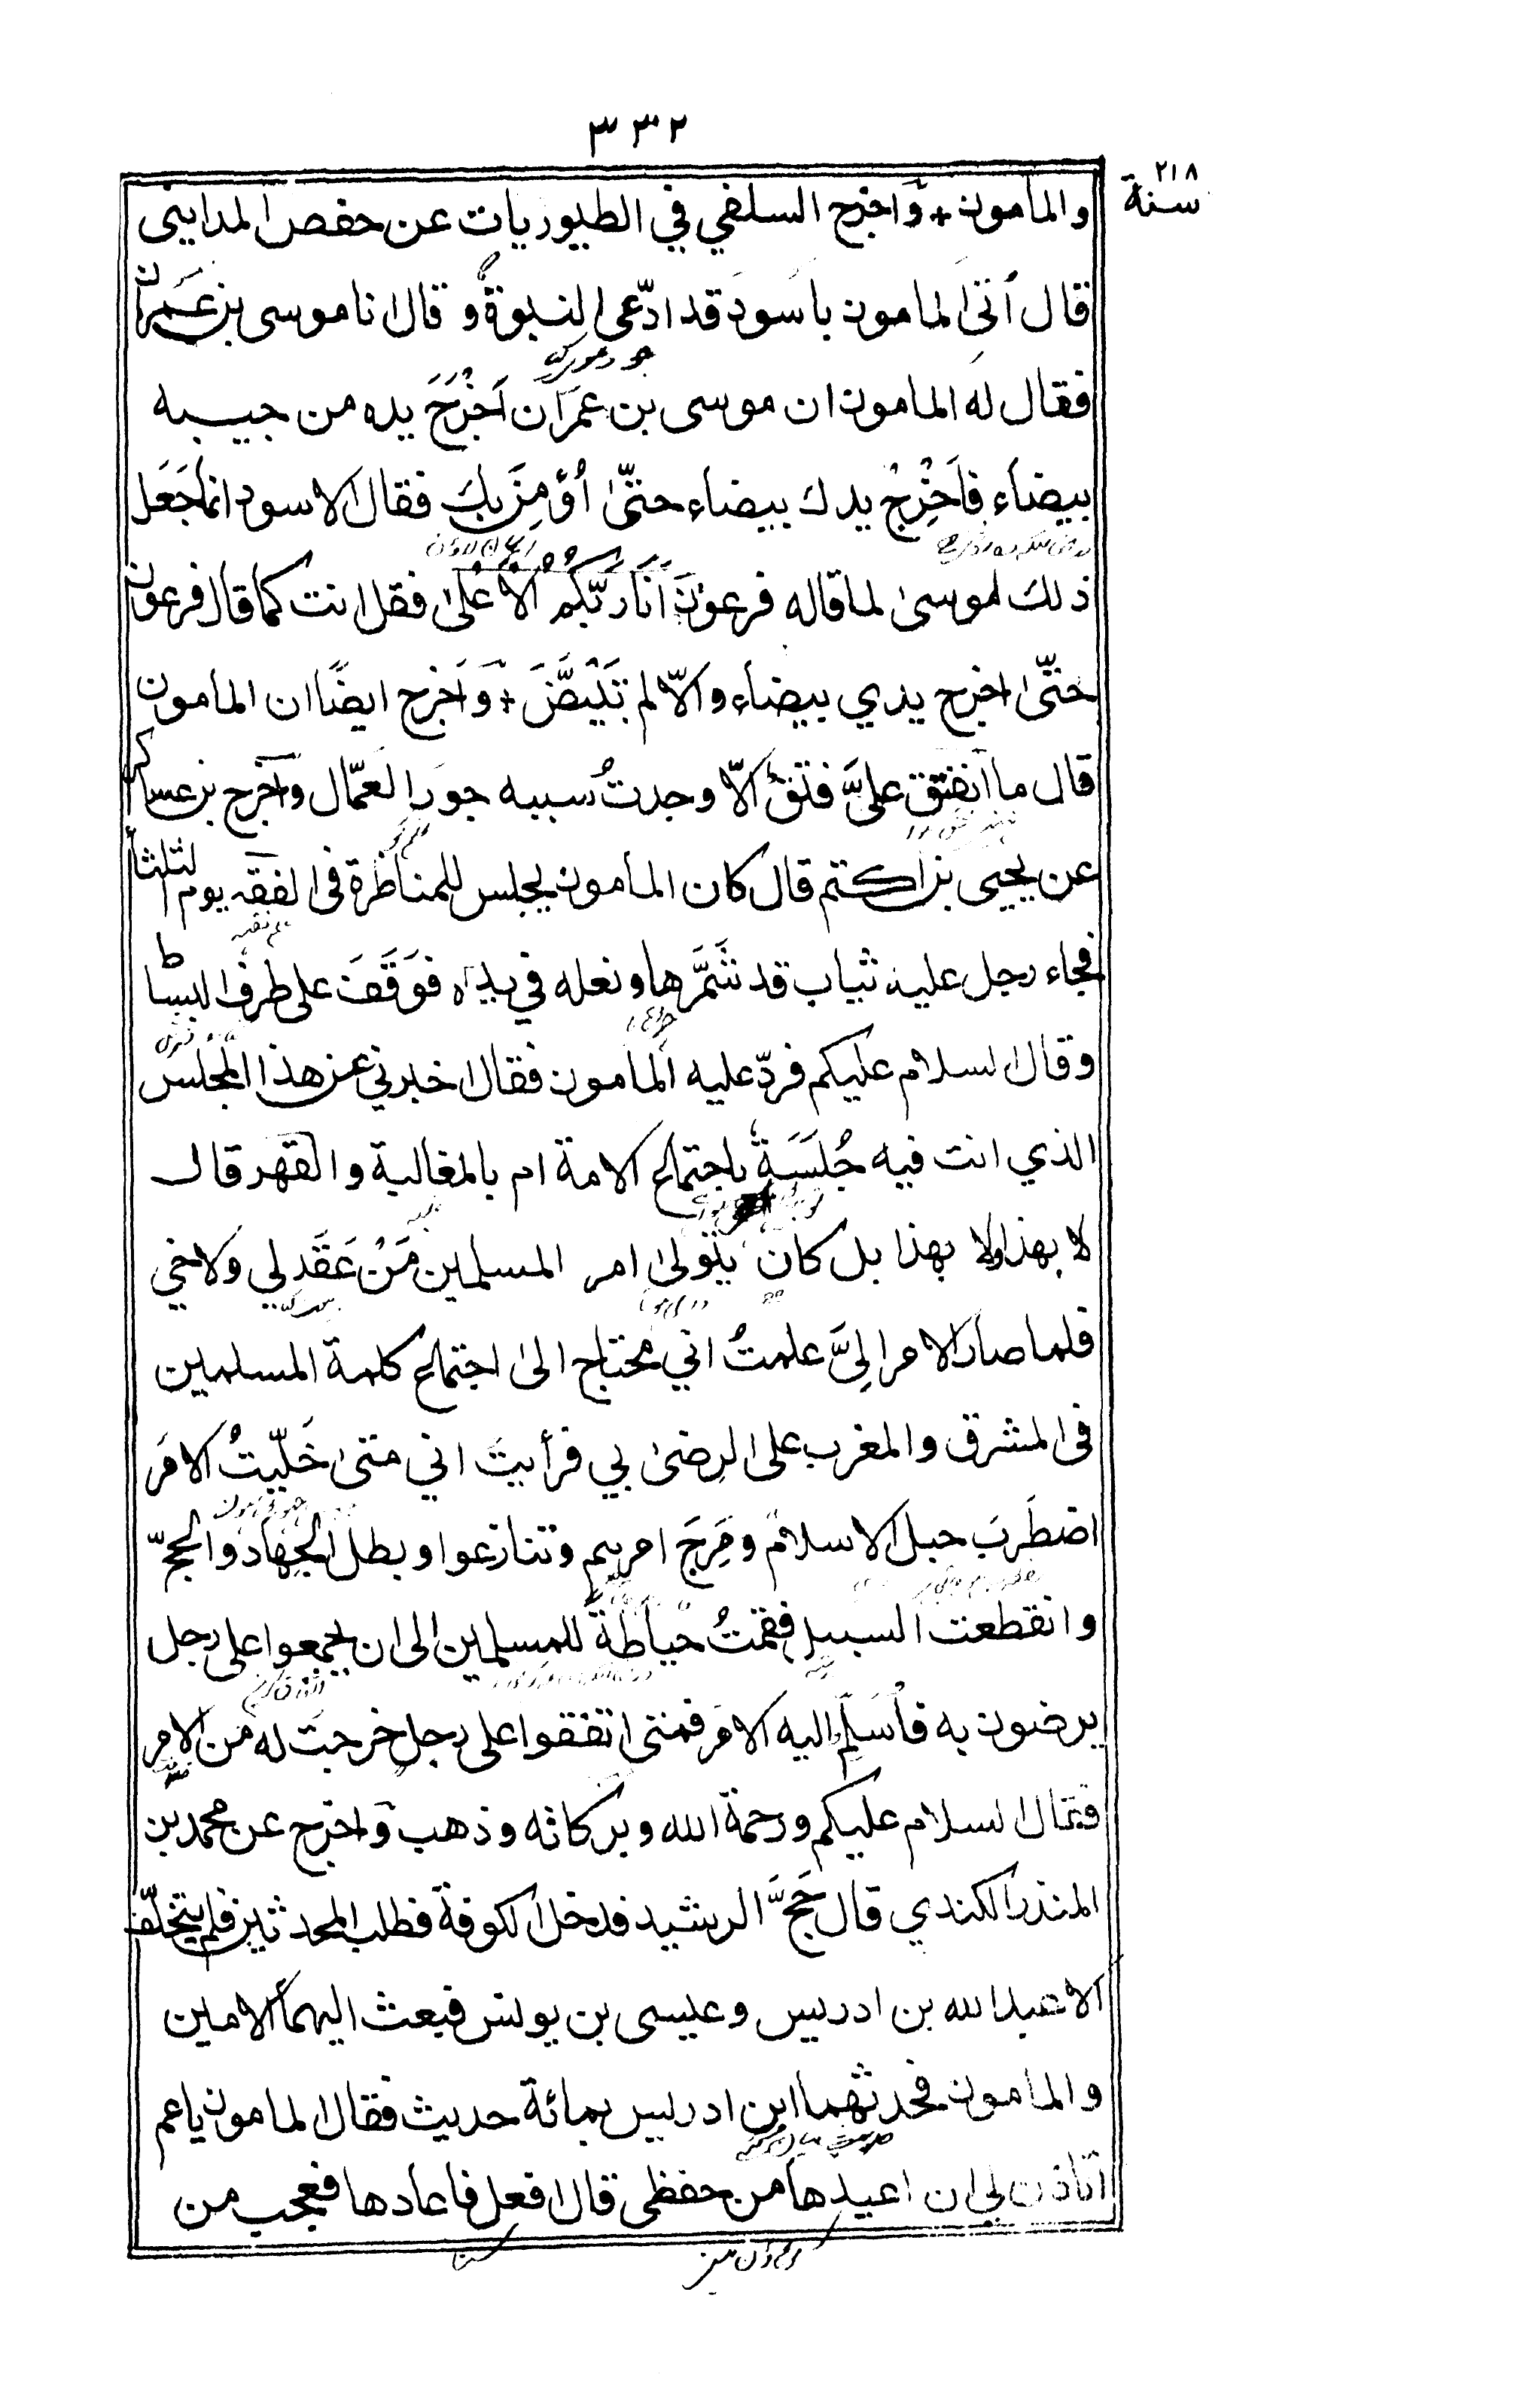 ٣٣٢
سنة ٢١٨
والمأمون + وَاخرج السلفي في الطيوريات عن حفص المدايني
قال أتى المامون باسود قد ادّعى النبوة و قال انا موسى بن عمران
فقال له المامون ان موسى بن عمران اَخْرَجَ يده من جيبه
بيضاء فاَخْرِجْ يدك بيضاء حتّىٰ اُؤمِنَ بك فقال الاسود انما جَعَل
ذلك لموسىٰ لما قاله فرعون اَنَا رَبُّكُمُ الْاَعْلىٰ فقل انت كما قال فرعون
حتّىٰ اخرج يدي بيضاء والّا لم تَبْيَضَّ + وَاَخرج ايضًا ان المأمون
قال ما انفتق عليَّ فتقٌ الّا وجدتُ سببه جورَ العمّال وَاخرج بن عساكر
عن يحيى بن اكتم قال كان المأمون يجلس للمناظرة فى الفقه يوم الثلثاء
فجاء رجل عليه ثياب قد شَمَّرها ونعله في يده فوَقَفَ على طرف البساط
وقال السلام عليكم فردّ عليه المأمون فقال اخبرني عن هذا المجلس
الذي انت فيه جُلَسَةٌ باجتماع الامة ام بالمغالبة والقهر قال
لا بهذا ولا بهذا بل كان يتولىٰ امر المسلمين مَنْ عَقَد لي ولاخي
فلما صار الامر اِلىَّ علمتُ اني محتاج الىٰ اجتماع كلمة المسلمين
فى المشرق والمغرب على الرِضىٰ بي فرأيتُ اني متىٰ خَلّيتُ الامَر
اضطَربَ حبل الاسلام ومَرِجَ امرهم وتنازعوا وبطل الجِهاد والحجّ
وانقطعت السبيل فقمتُ حياطةً للمسلمين الى ان يجمعوا على رجل
يرضون به فأُسَلِّم اليه الامَر فمتى اتفقوا على رجل خرجتُ له من الامر
فقال السلام عليكم ورحمة الله وبركاته وذهب وَاخرج عن محمد بن
المنذر الكندي قال حَجَّ الرشيد فدخل الكوفة فطلب المحدثين فلم يتخلّف
الا عبد الله بن ادريس وعيسى بن يونس فبعث اليهما الامين
والمامون فحدثهما ابن ادريس بمائة حديث فقال المامون يا عم
اتاذن لي ان اعيدها من حفظى قال افعل فاعادها فعجب من